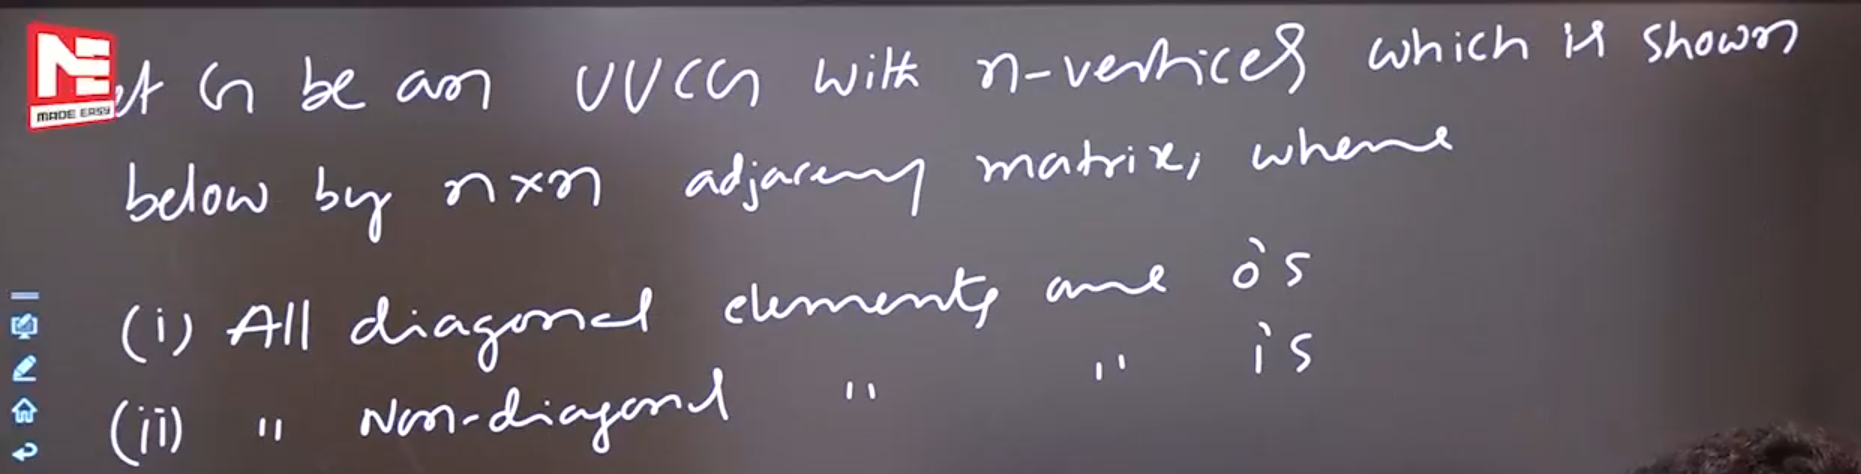 MADE EASY
et G be an UUCG with n-vertices which is shown
below by n×n adjacency matrix, where
(i) All diagonal elements are 0's
(ii) " Non-diagonal " " 1's